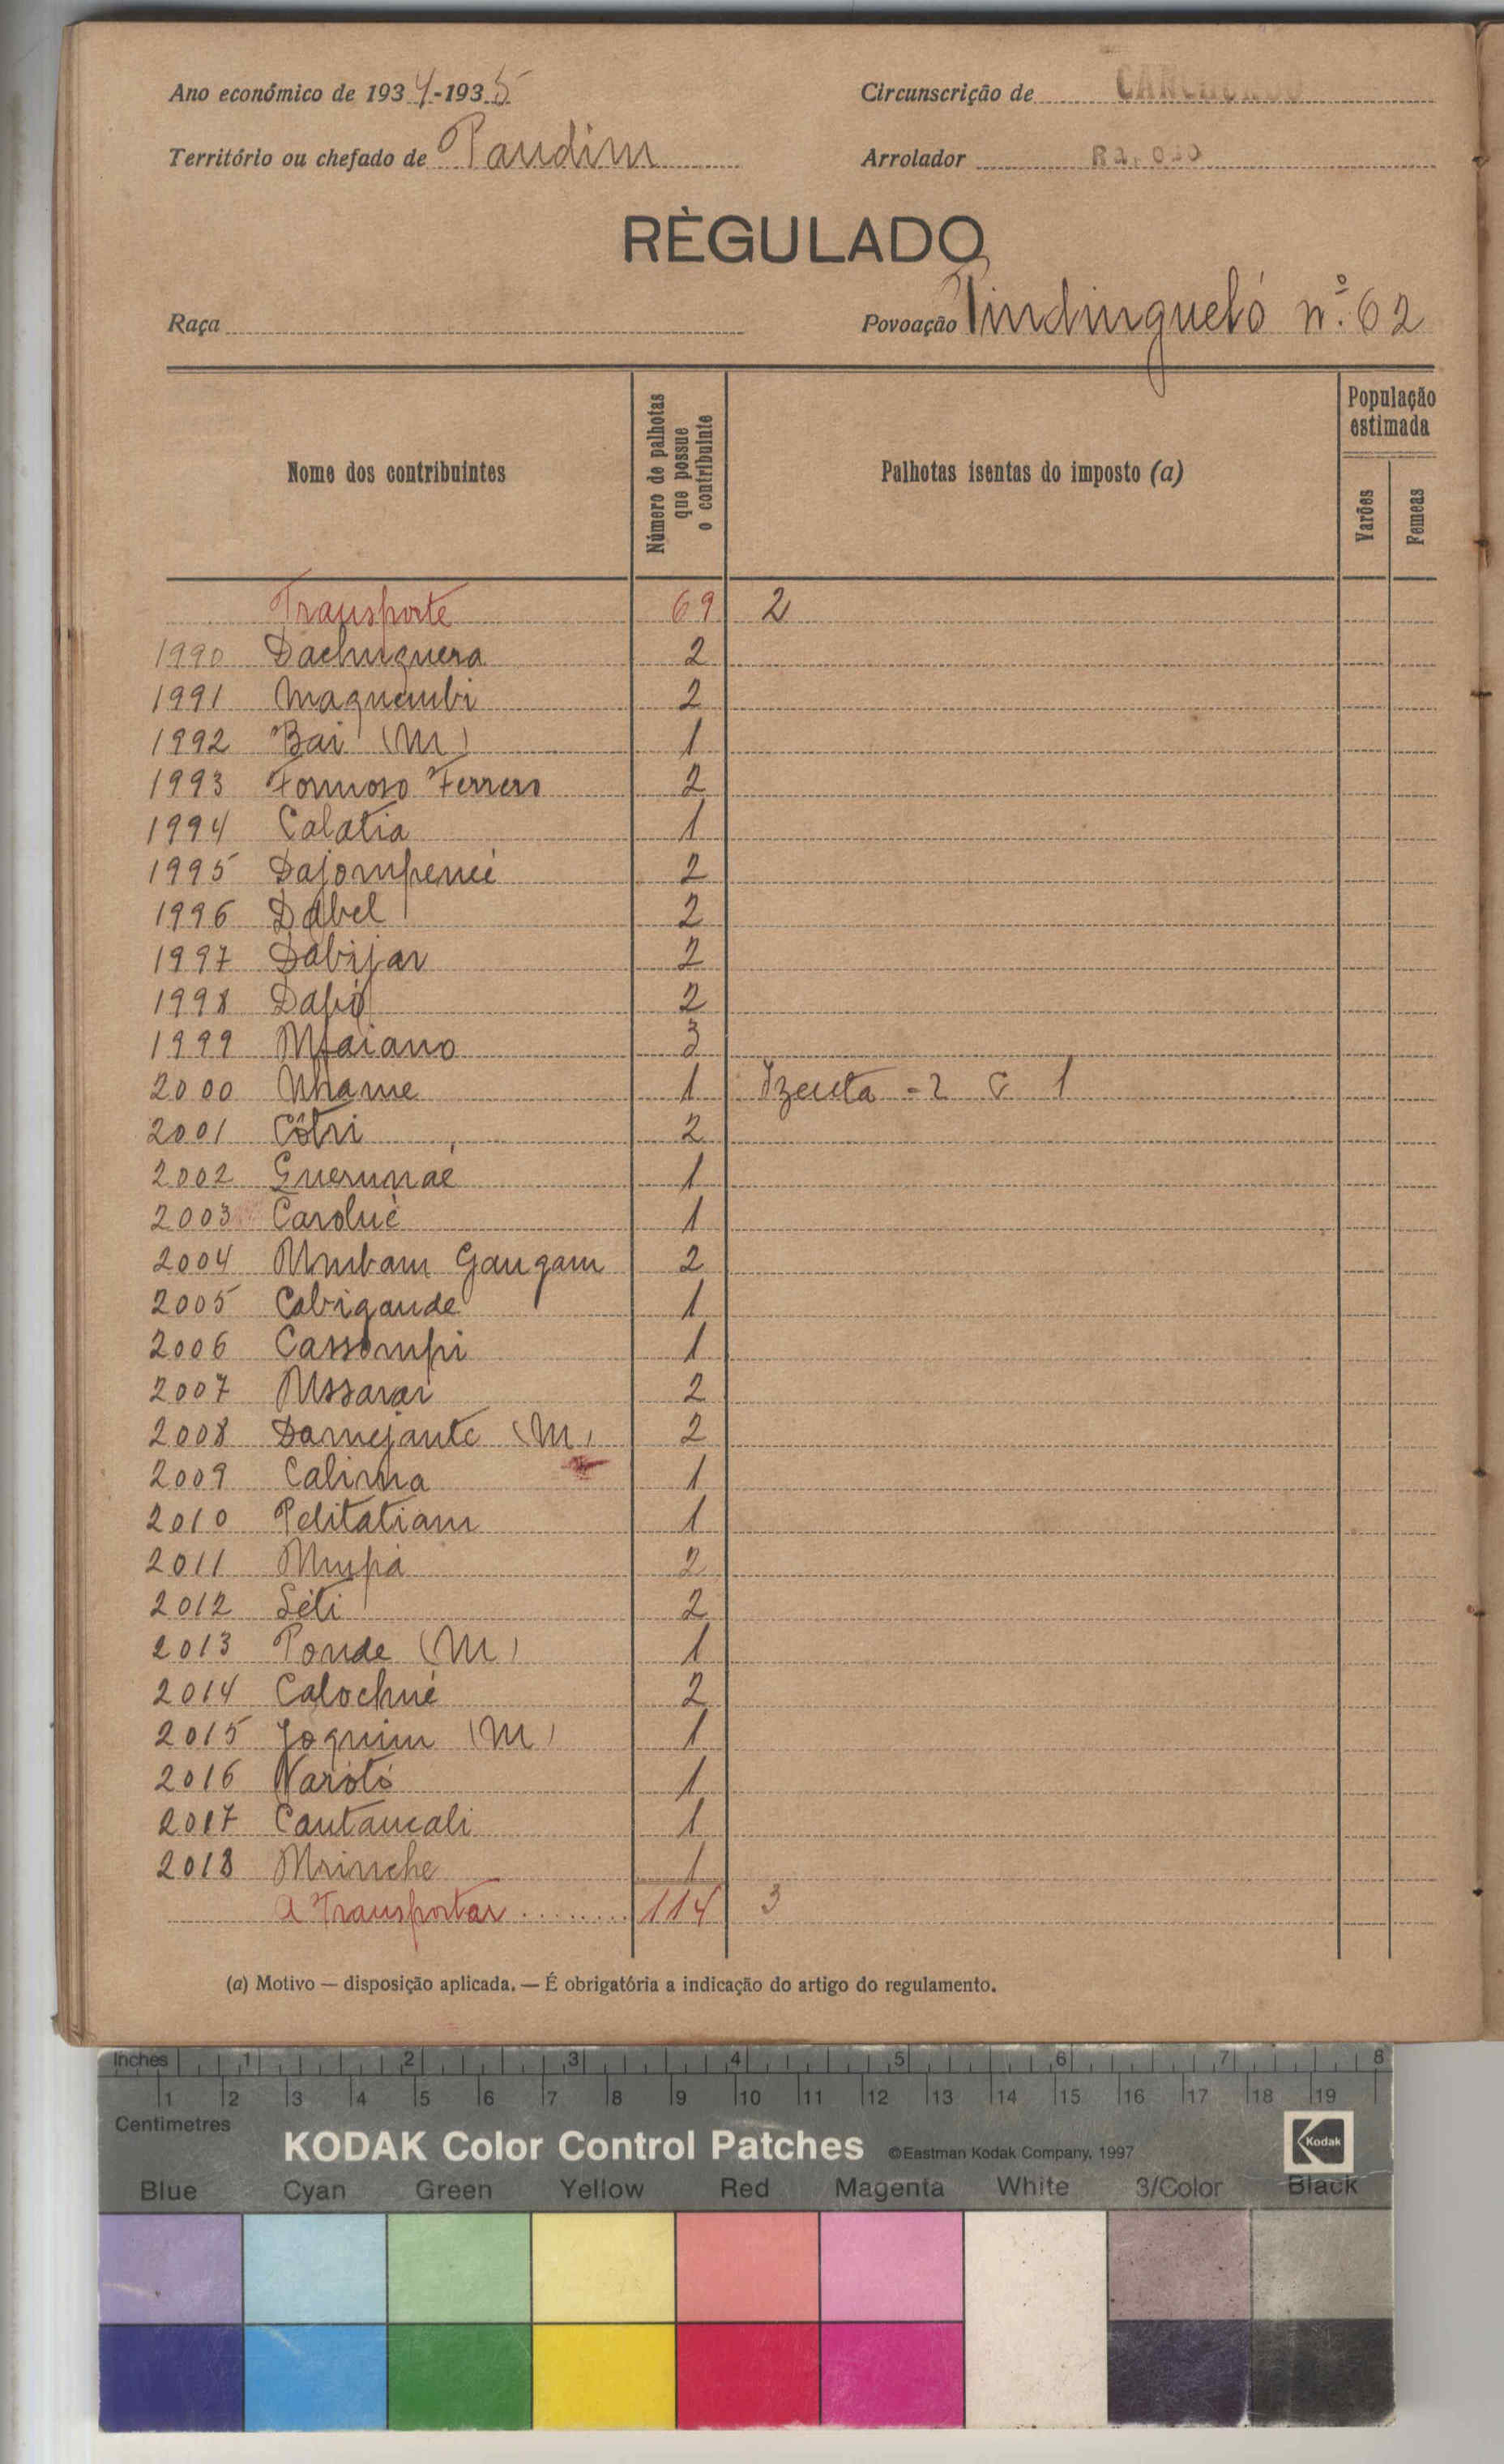 Ano económico de 1934-1935
Circunscrição de CANCHUNGO
Território ou chefado de Pandim
Arrolador
RÈGULADO
Raça
Povoação Tindingueló nº. 62
Nome dos contribuintes
Número de palhotas que possue o contribuinte
Palhotas isentas do imposto (a)
População estimada
Varões
Femeas
Transporte 69 2
1990 Dachinguera 2
1991 Maquembi 2
1992 Bai (M) 1
1993 Formoso Ferrero 2
1994 Calatia 1
1995 Dajompené 2
1996 Dabel 2
1997 Dabijar 2
1998 Dapó 2
1999 Mfaiano 3
2000 Nhame 1 Izenta - 2 1
2001 Côtri 2
2002 Guerunaé 1
2003 Carolué 1
2004 Umbam Gangam 2
2005 Cabigande 1
2006 Cassompi 1
2007 Ussarar 2
2008 Damejante (M) 2
2009 Calinna 1
2010 Pelitatiam 1
2011 Mupá 2
2012 Séti 2
2013 Ponde (M) 1
2014 Calochué 2
2015 Joquim (M) 1
2016 Narótó 1
2017 Cantancali 1
2018 Mrinche 1
A Transportar ........ 114 3
(a) Motivo — disposição aplicada. — É obrigatória a indicação do artigo do regulamento.
Inches 1 2 3 4 5 6 7 8
1 2 3 4 5 6 7 8 9 10 11 12 13 14 15 16 17 18 19
Centimetres
KODAK Color Control Patches ©Eastman Kodak Company, 1997 Kodak
Blue Cyan Green Yellow Red Magenta White 3/Color Black